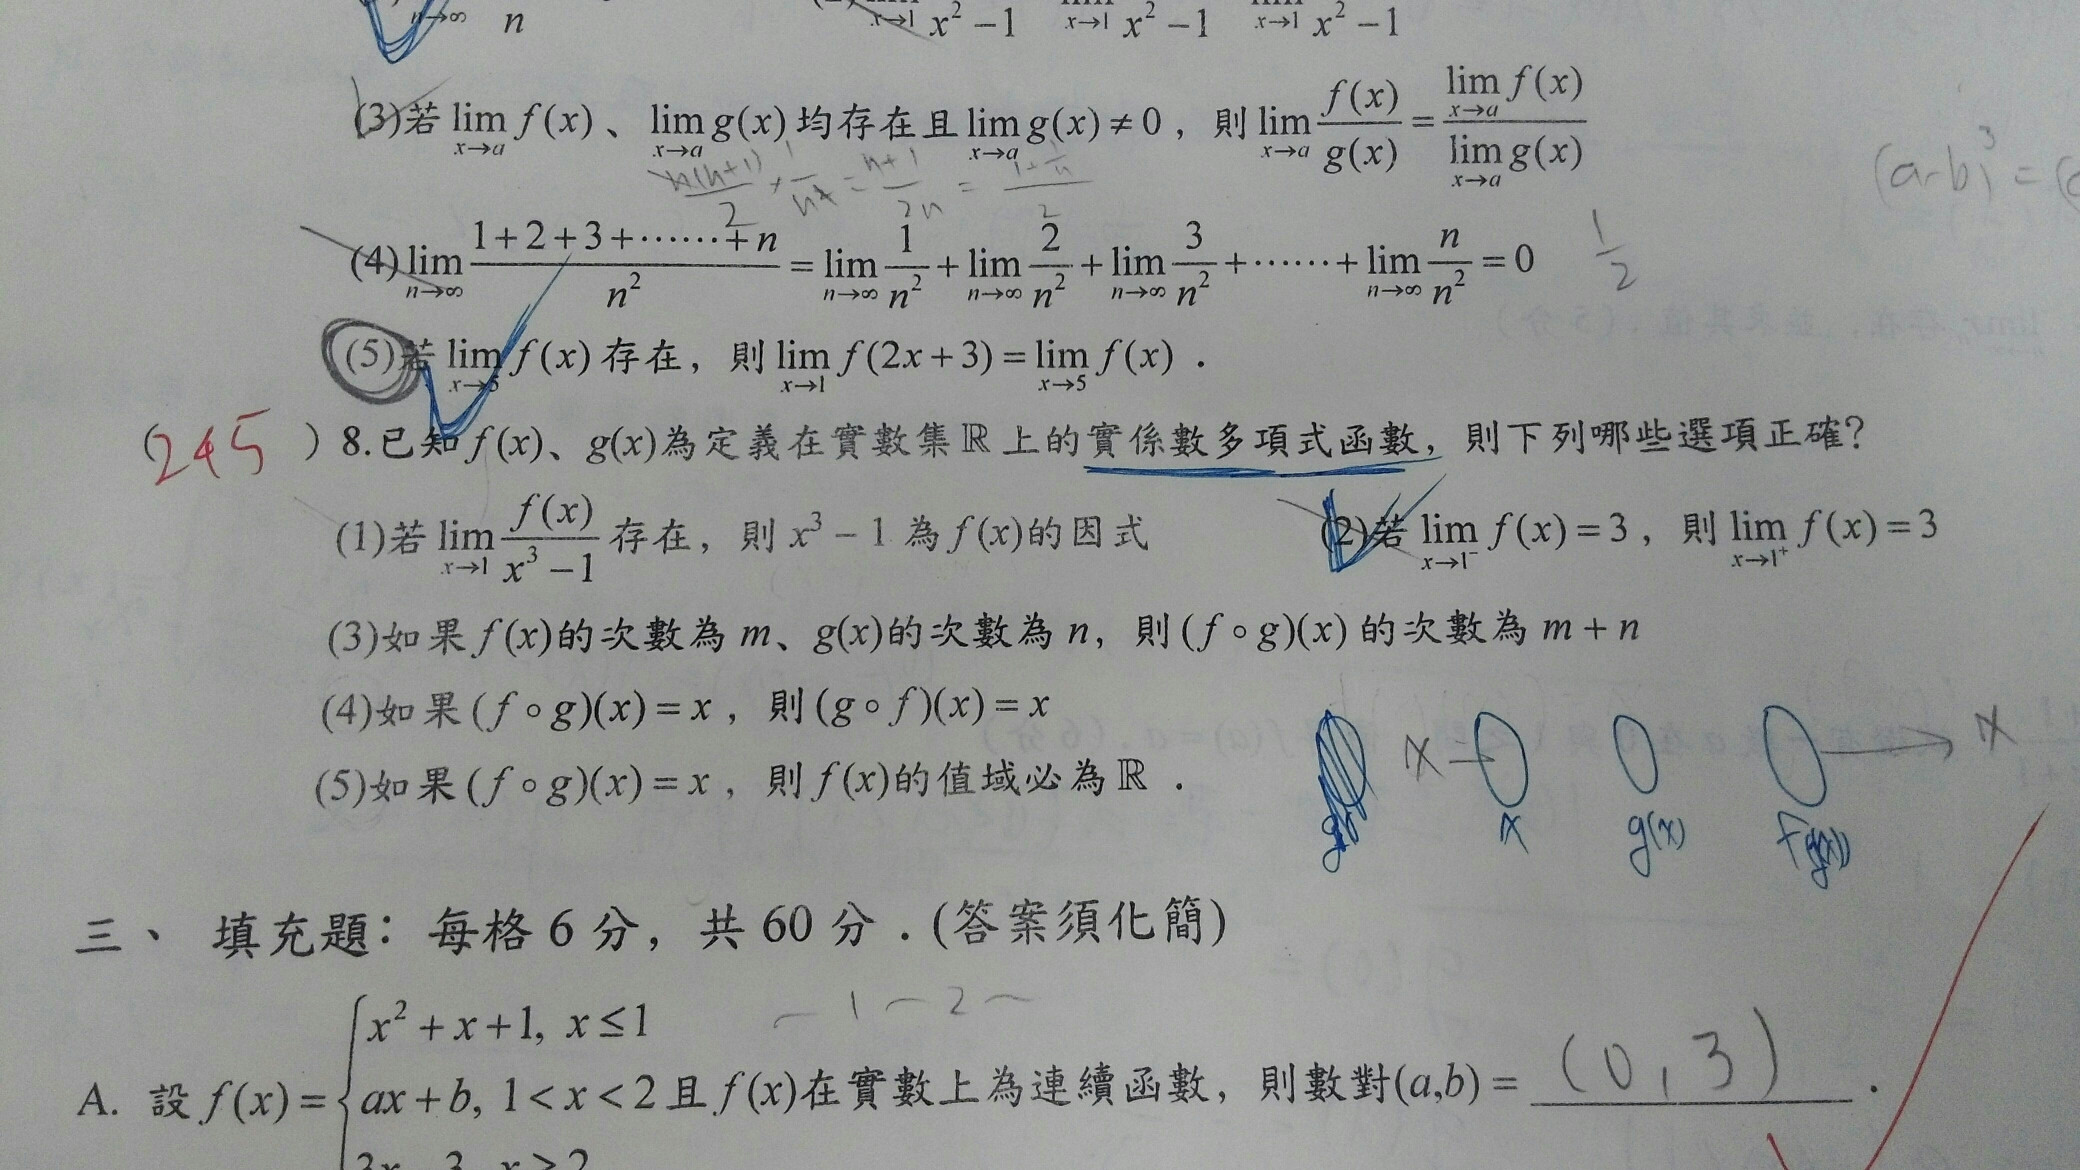 n→∞ n x→1 x² −1 x→1 x² −1 x→1 x² −1
(3)若 lim x→a f(x)、 lim x→a g(x) 均存在且 lim x→a g(x) ≠ 0，則 lim x→a f(x)/g(x) = lim x→a f(x) / lim x→a g(x)
n(n+1)/2 = n+1/2n = 1+1/n / 2
(a-b)³ = (
(4) lim n→∞ (1+2+3+⋯⋯+n)/n² = lim n→∞ 1/n² + lim n→∞ 2/n² + lim n→∞ 3/n² +⋯⋯+ lim n→∞ n/n² = 0 1/2
(5)若 lim x→5 f(x) 存在，則 lim x→1 f(2x+3) = lim x→5 f(x) ．
(245 ) 8.已知 f(x)、g(x)為定義在實數集 ℝ 上的實係數多項式函數，則下列哪些選項正確？
(1)若 lim x→1 f(x)/(x³ −1) 存在，則 x³ −1 為 f(x)的因式 (2)若 lim x→1⁻ f(x) = 3，則 lim x→1⁺ f(x) = 3
(3)如果 f(x)的次數為 m、g(x)的次數為 n，則 (f∘g)(x) 的次數為 m + n
(4)如果 (f∘g)(x) = x，則 (g∘f)(x) = x
(5)如果 (f∘g)(x) = x，則 f(x)的值域必為 ℝ ．
x x
x g(x)
三、 填充題：每格 6 分，共 60 分．(答案須化簡)
1 2
x² + x +1, x ≤ 1
A. 設 f(x) = { ax + b, 1 < x < 2 且 f(x)在實數上為連續函數，則數對(a,b) = (0,3) ．
3x − 3, x ≥ 2